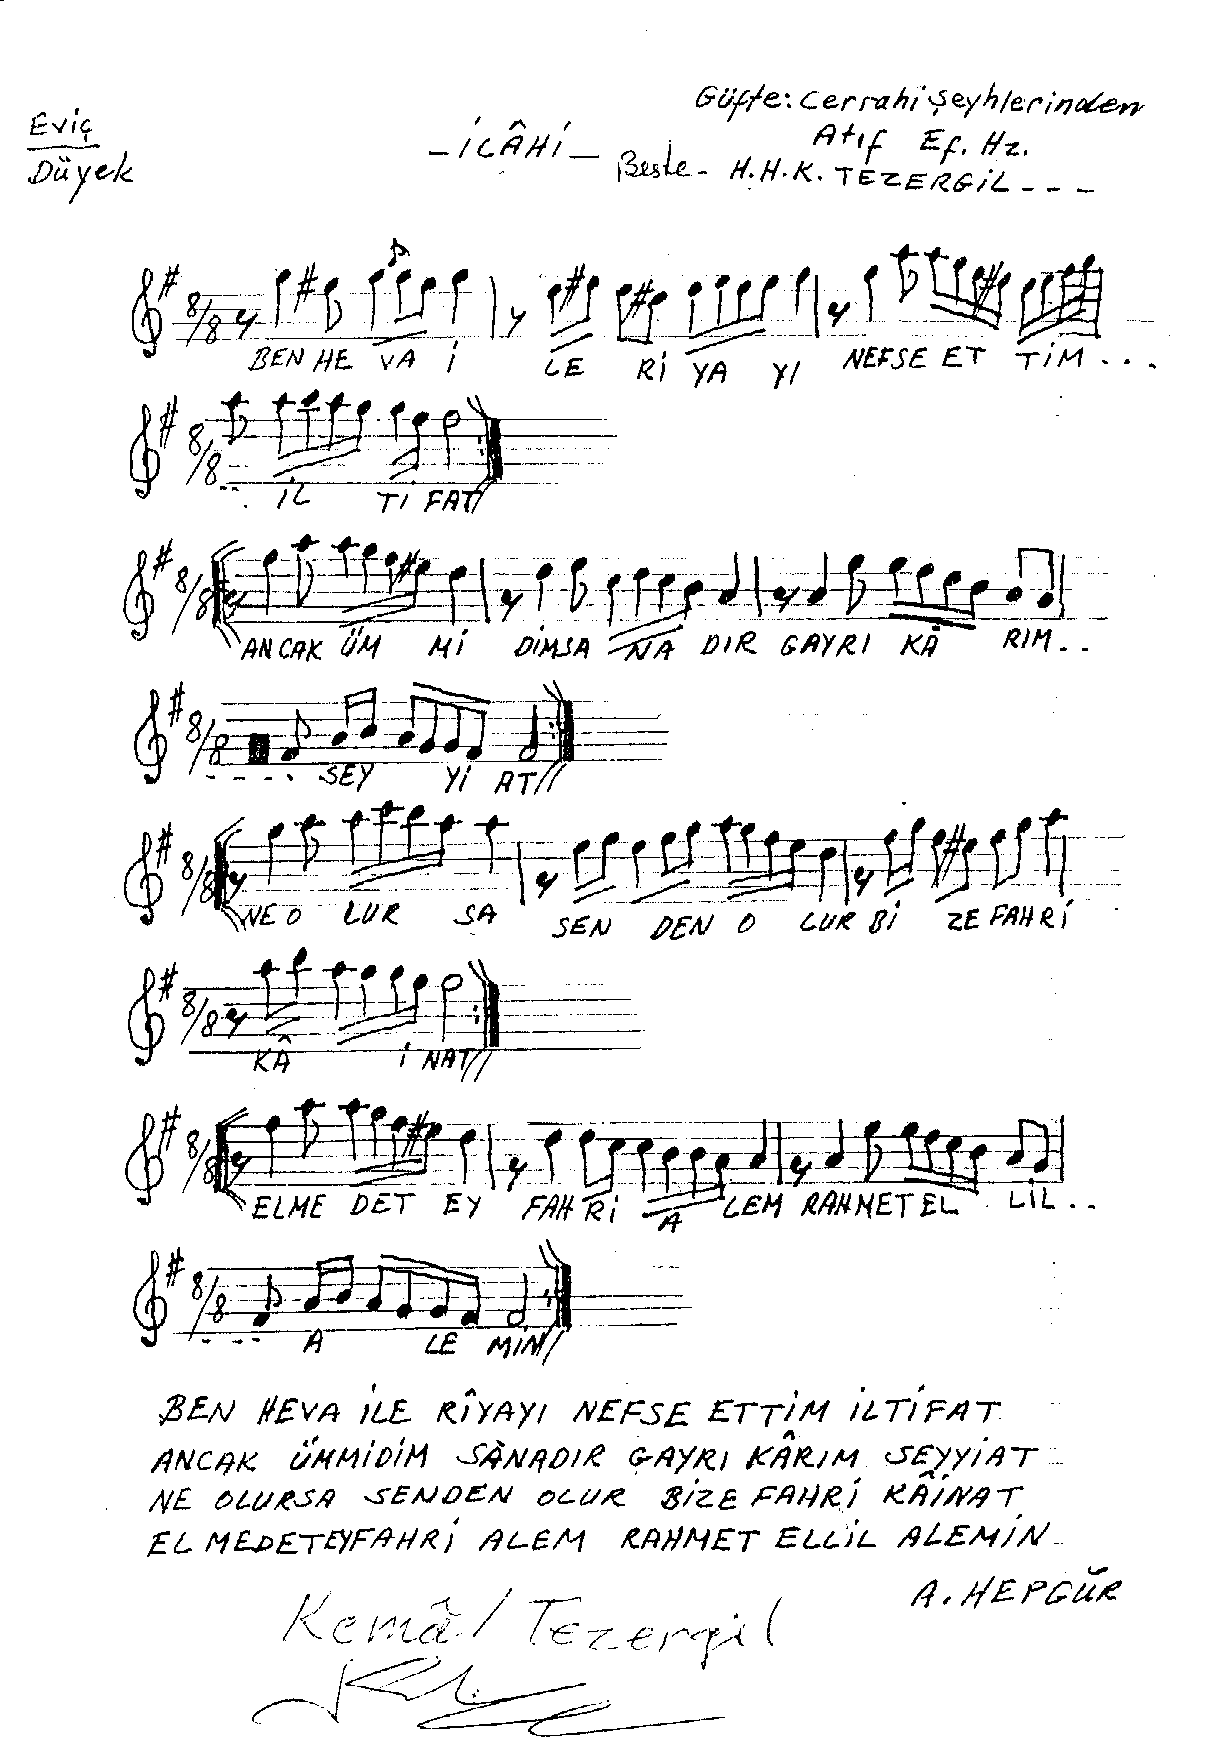 Eviç
Düyek
- İLÂHİ -
Güfte: Cerrahi Şeyhlerinden
Atıf Ef. Hz.
Beste - H.H.K. TEZERGİL - - -
8/8
BEN HE VA İ LE Rİ YA YI NEFSE ET TİM . . .
8/8
. . . İL Tİ FAT//
8/8
ANCAK ÜM Mİ DİMSA NA DIR GAYRI KÂ RIM . .
8/8
- - - - . SEY Yİ AT//
8/8
NE O LUR SA SEN DEN O LUR Bİ ZE FAHRİ
8/8
KÂ İ NAT//
8/8
ELME DET EY FAH Rİ A LEM RAHMET EL LİL . .
8/8
- - - A LE MİN//
BEN HEVA İLE RÎYAYI NEFSE ETTİM İLTİFAT
ANCAK ÜMMİDİM SÀNADIR GAYRI KÂRIM SEYYİAT
NE OLURSA SENDEN OLUR BİZE FAHRİ KÂİNAT
EL MEDETEYFAHRİ ALEM RAHMET ELLİL ALEMİN
A. HEPGÜR
Kemâl Tezergil